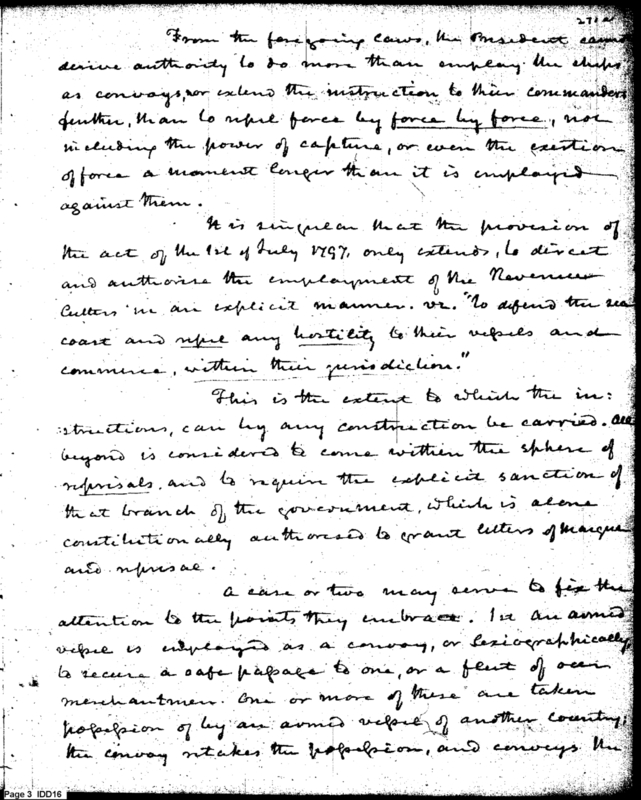 271 a
From the foregoing Laws, the President cannot
derive authority to do more than employ the ships
as convoys, nor extend the instruction to their commanders
further, than to repel force by force by force, not
including the power of capture, or even the exertion
of force a moment longer than it is employed
against them.
It is singular that the provision of
the act of the 1st of July 1797. only extends, to direct
and authorise the employment of the Revenue
Cutters in an explicit manner. vz. "to defend the sea
coast and repel any hostility to their vessels and
commerce, within their jurisdiction."
This is the extent to which the in:
structions, can by any construction be carried. All
beyond is considered to come within the sphere of
reprisals, and to require the explicit sanction of
that branch of the government, which is alone
constitutionally authorised to grant letters of Marque
and reprisal.
A case or two may serve to fix the
attention to the points they embrace. 1st An armed
vessel is employed as a convoy, or Lexiographically,
to secure a safe passage to one, or a fleet of our
merchantmen. One or more of these are taken
possession of by an armed vessel of another country,
the convoy retakes the possession, and conveys the
Page 3 IDD16